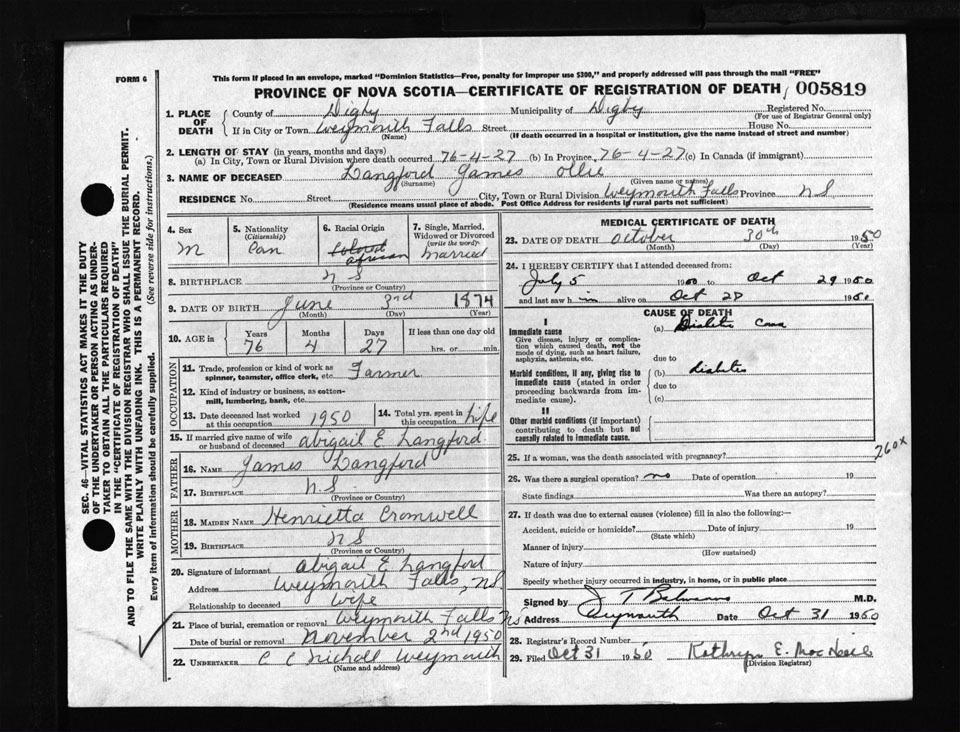 FORM 6
This form if placed in an envelope, marked "Dominion Statistics—Free, penalty for improper use $300," and properly addressed will pass through the mail "FREE"
PROVINCE OF NOVA SCOTIA—CERTIFICATE OF REGISTRATION OF DEATH 005819
SEC. 46—VITAL STATISTICS ACT MAKES IT THE DUTY
OF THE UNDERTAKER OR PERSON ACTING AS UNDER-
TAKER TO OBTAIN ALL THE PARTICULARS REQUIRED
IN THE "CERTIFICATE OF REGISTRATION OF DEATH"
AND TO FILE THE SAME WITH THE DIVISION REGISTRAR WHO SHALL ISSUE THE BURIAL PERMIT.
WRITE PLAINLY WITH UNFADING INK. THIS IS A PERMANENT RECORD.
Every item of information should be carefully supplied. (See reverse side for instructions.)
1. PLACE OF DEATH
County of Digby Municipality of Digby Registered No.
(For use of Registrar General only)
If in City or Town Weymouth Falls Street House No.
(Name) (If death occurred in a hospital or institution, give the name instead of street and number)
2. LENGTH OF STAY (in years, months and days)
(a) In City, Town or Rural Division where death occurred 76-4-27 (b) In Province 76-4-27 (c) In Canada (if immigrant)
3. NAME OF DECEASED Langford James Ollie
(Surname) (Given name or names)
RESIDENCE No. Street City, Town or Rural Division Weymouth Falls Province N S
(Residence means usual place of abode. Post Office Address for residents in rural parts not sufficient)
4. Sex
M
5. Nationality
(Citizenship)
Can
6. Racial Origin
colored
african
7. Single, Married,
Widowed or Divorced
(write the word)
married
8. BIRTHPLACE N S
(Province or Country)
9. DATE OF BIRTH June 3rd 1874
(Month) (Day) (Year)
10. AGE in Years Months Days If less than one day old
76 4 27 hrs. or min.
OCCUPATION
11. Trade, profession or kind of work as
spinner, teamster, office clerk, etc. Farmer
12. Kind of industry or business, as cotton-
mill, lumbering, bank, etc.
13. Date deceased last worked
at this occupation 1950
14. Total yrs. spent in
this occupation life
15. If married give name of wife
or husband of deceased Abigail E Langford
FATHER
16. NAME James Langford
17. BIRTHPLACE N.S.
(Province or Country)
MOTHER
18. MAIDEN NAME Henrietta Cromwell
19. BIRTHPLACE N S
(Province or Country)
20. Signature of informant Abigail E Langford
Address Weymouth Falls, NS
Relationship to deceased Wife
21. Place of burial, cremation or removal Weymouth Falls NS
Date of burial or removal November 2nd 1950
22. UNDERTAKER C C Nicholl Weymouth
(Name and address)
MEDICAL CERTIFICATE OF DEATH
23. DATE OF DEATH October 30th 1950
(Month) (Day) (Year)
24. I HEREBY CERTIFY that I attended deceased from:
July 5 1950 to Oct 29 1950
and last saw h im alive on Oct 28 1950
CAUSE OF DEATH
I
Immediate cause
Give disease, injury or complica-
tion which caused death, not the
mode of dying, such as heart failure,
asphyxia, asthenia, etc.
(a) Diabetic Coma
due to
Morbid conditions, if any, giving rise to
immediate cause (stated in order
proceeding backwards from im-
mediate cause).
(b) diabetes
due to
(c)
II
Other morbid conditions (if important)
contributing to death but not
causally related to immediate cause.
260X
25. If a woman, was the death associated with pregnancy?
26. Was there a surgical operation? no Date of operation 19
State findings Was there an autopsy?
27. If death was due to external causes (violence) fill in also the following:—
Accident, suicide or homicide? Date of injury 19
(State which)
Manner of injury
(How sustained)
Nature of injury
Specify whether injury occurred in industry, in home, or in public place
Signed by J T M.D.
Address Weymouth Date Oct 31 1950
28. Registrar's Record Number
29. Filed Oct 31 1950 Kathryn E. MacNeill
(Division Registrar)